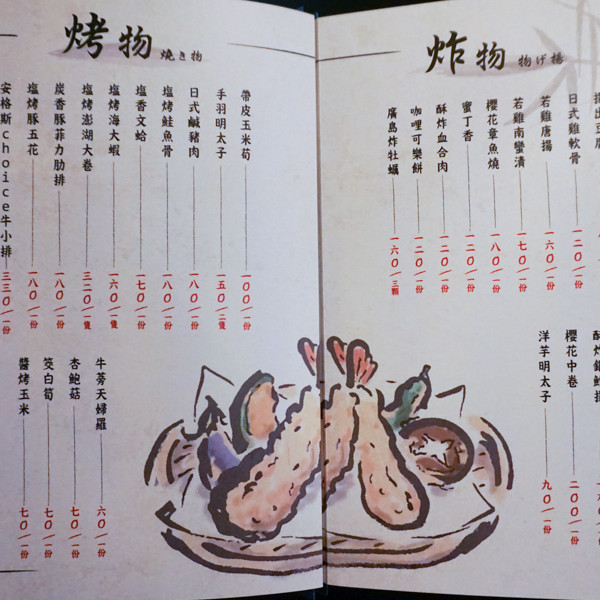 炸物
日式雞軟骨 一二0/一份
若雞唐揚 一六0/一份
若雞南蠻漬 一七0/一份
櫻花章魚燒 一八0/一份
蜜丁香 一二0/一份
酥炸血合肉 一二0/一份
咖哩可樂餅 一二0/一份
廣島炸牡蠣 一六0/三顆
櫻花中卷 二00/一份
洋芋明太子 九0/一份
烤物 燒き物
帶皮玉米筍 一00/一份
手羽明太子 一五0/二隻
日式鹹豬肉 一八0/一份
塩烤鮭魚骨 一八0/一份
塩香文蛤 一七0/一份
塩烤海大蝦 一六0/一隻
塩烤澎湖大卷 三二0/一隻
炭香豚菲力肋排 一八0/一份
塩烤豚五花 一八0/一份
安格斯choice牛小排 三三0/一份
牛蒡天婦羅 六0/一份
杏鮑菇 七0/一份
筊白筍 七0/一份
醬烤玉米 七0/一份